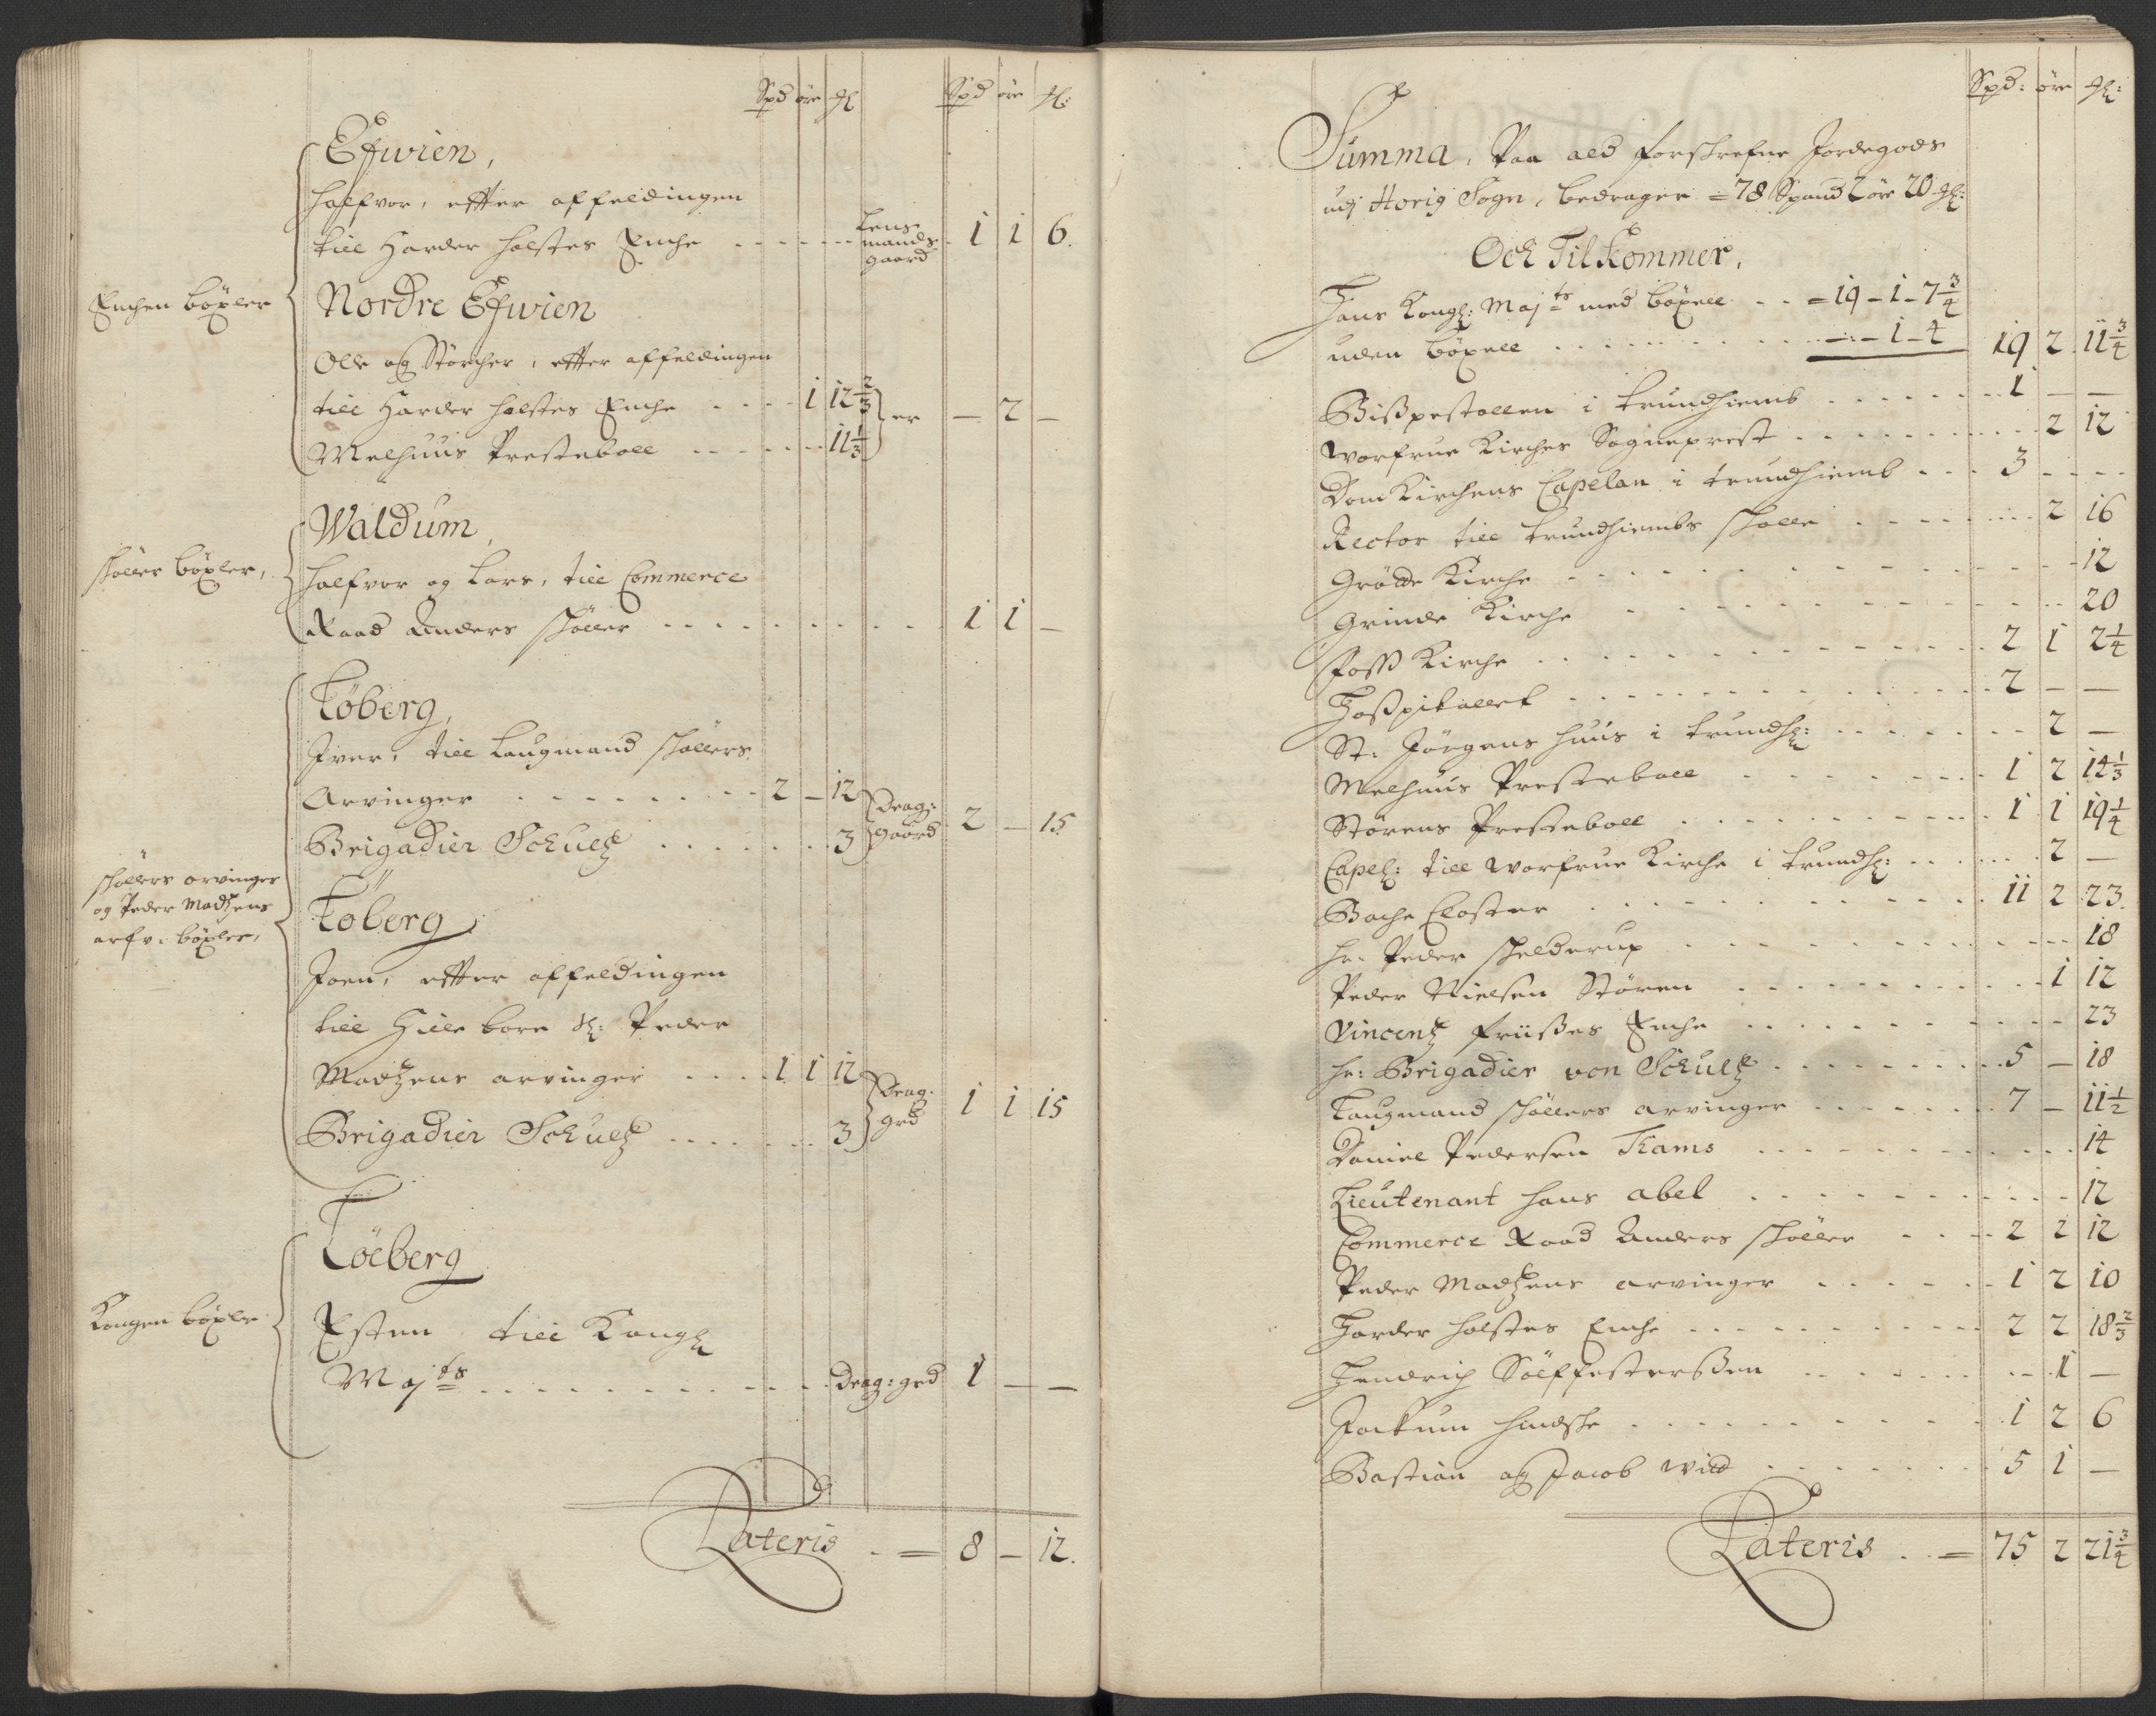 Spd öre ₰ Spd öre ₰:
Efwien,
Halfvor, effter affeldingen
till Harder Holstes Enche Lens mands gaard 1 1 6.
Enchen böxler
Nordre Efwien
Olle og Störcher, effter affeldingen
till Harder Holstes Enche 1 12 2/3
er — 2 —
Melhuus Presteboll 11 1/3
Waldum,
Schöller böxler,
Halfvor og Lars, till Commerce
Raad Anders Schöller 1 1 —
Föberg,
Iver, till Laugmand Schöllers
Arvinger 2 — 12
Drag: gaard 2 — 15
Brigadier Schultz 3
Schöllers arvinger
og Peder Madtzens
arfv: böxler,
Föberg
Joen, effter affeldingen
till Hille borre Sl: Peder
Madtzens arvinger 1 1 12
Drag: grd 1 1 15
Brigadier Schultz 3
Föeberg
Kongen böxler
Esten till Kongl
Majts Drag: grd 1 — —
Lateris = 8 — 12.
Spd: öre ₰:
Summa, Paa ald forschrefne Jordegods
udj Horig Sogn, bedrager = 78 Spand 2 öre 20 ₰:
Och Tilkommer,
Hans Kongl: Majts med böxell = 19 - 1 - 7 3/4
uden böxell — - 1 - 4 19 2 11 3/4
Bispestollen i Trundhiemb 1 — —
Worfrue Kirches Sogneprest 2 12
Dom Kirchens Capelan i Trundhiemb 3
Rector till Trundhiembs Scholle 2 16
Grötte Kirche 12
Grinde Kirche 20
Foss Kirche 2 1 2 1/4
Hospitallet 2 — —
St: Jörgens Huus i Trundh: 2 —
Melhuus Presteboll 1 2 14 1/3
Störens Presteboll 1 1 19 1/4
Capel: till Worfrue Kirche i Trundh: 2 —
Bache Closter 11 2 23.
Hr: Peder Schelderup 18
Peder Nielsen Stören 1 12
Vincentz Friisses Enche 23
Hr: Brigadier von Schultz 5 — 18
Laugmand Schöllers arvinger 7 — 11 1/2
Daniel Pedersen Thams 14
Lieutenant Hans Abel 12
Commerce Raad Anders Schöller 2 2 12
Peder Madtzens arvinger 1 2 10
Harder Holstes Enche 2 2 18 2/3
Hendrich Sölffesterssen 1 —
Jockum 1 2 6
Bastian og Jacob Wild 5 1 —
Lateris = 75 2 21 3/4